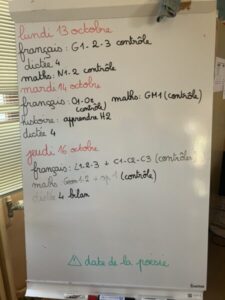 lundi 13 octobre
français : G1-2-3 contrôle
dictée 4
maths : N1-2 contrôle
mardi 14 octobre
français : O1-O2 maths : GM1 (contrôle)
(contrôle)
histoire : apprendre H2
dictée 4
jeudi 16 octobre
français : L1-2-3 + C1-C2-C3 (contrôles)
maths Geom 1-2 + (contrôle)
dictée 4 bilan
⚠ date de la poésie